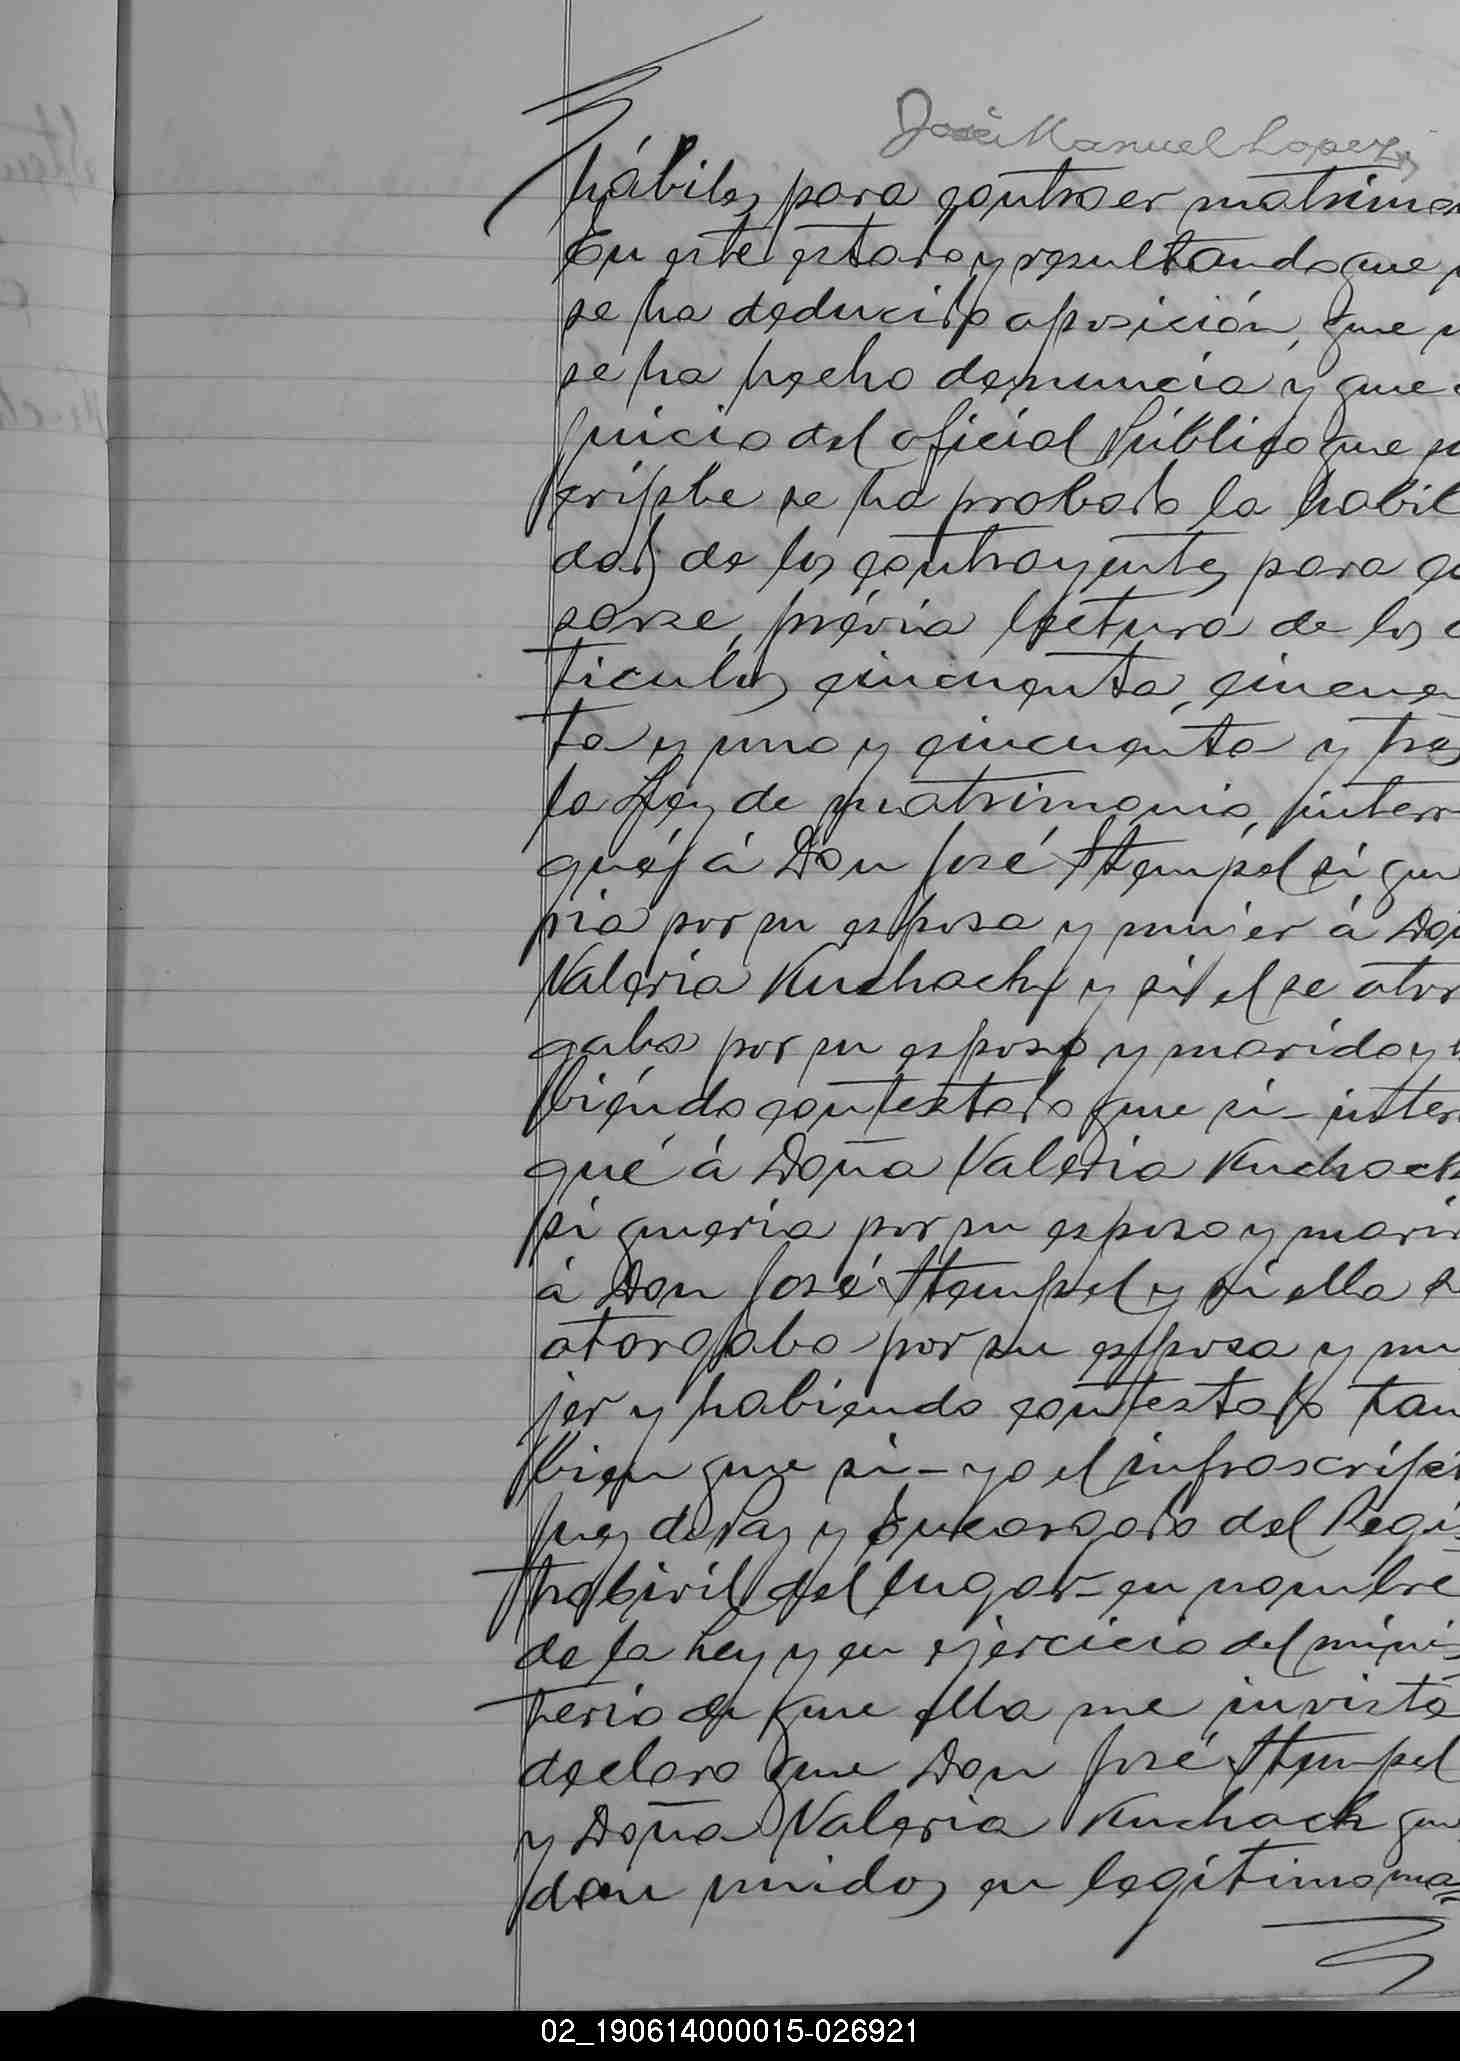 José Manuel Lopez
hábiles para contraer matrimo
En este estado y resultando que n
se ha deducido oposición, que n
se ha hecho denuncia y que a
juicio del oficial Público que su
cripbe se ha probado la habil
dad de los contrayentes para ca
sarse, prévia lectura de los a
ticulos cincuenta, cincuen
ta y uno y cincuenta y tres
la Ley de matrimonio, interr
gué á Don José Stempel si que
ria por su esposa y mujer á Doñ
Valeria Kuchach y si el se otor
gaba por su esposo y marido y h
biendo contestado que si - inter
qué á Doña Valeria Kuchach
si queria por su esposo y mari
á Don José Stempel y si ella s
otorgaba por su esposa y mu
jer y habiendo contestado tam
bien que si - yo el infrascripto
Juez de Paz y Encargado del Regis
tro Civil del lugar - en nombre
de la Ley y en ejercicio del minis
terio de que ella me invista
declaro que Don José Stempel
y Doña Valeria Kuchach que
dan unidos en legítimo ma=
02_190614000015-026921